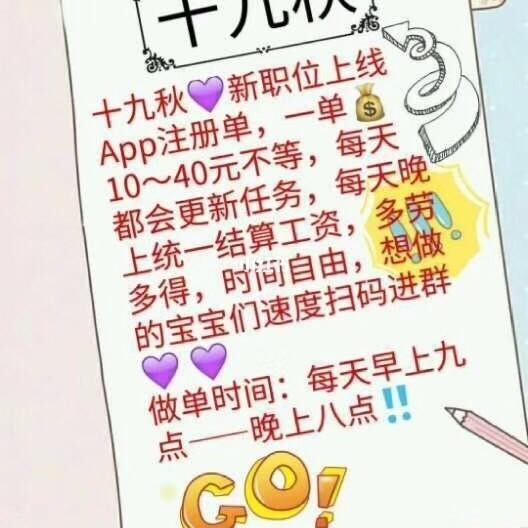 十九秋
十九秋💜新职位上线
App注册单，一单💰
10～40元不等，每天
都会更新任务，每天晚
上统一结算工资，多劳
多得，时间自由，想做
的宝宝们速度扫码进群
💜💜
做单时间：每天早上九
点——晚上八点‼️
GO!